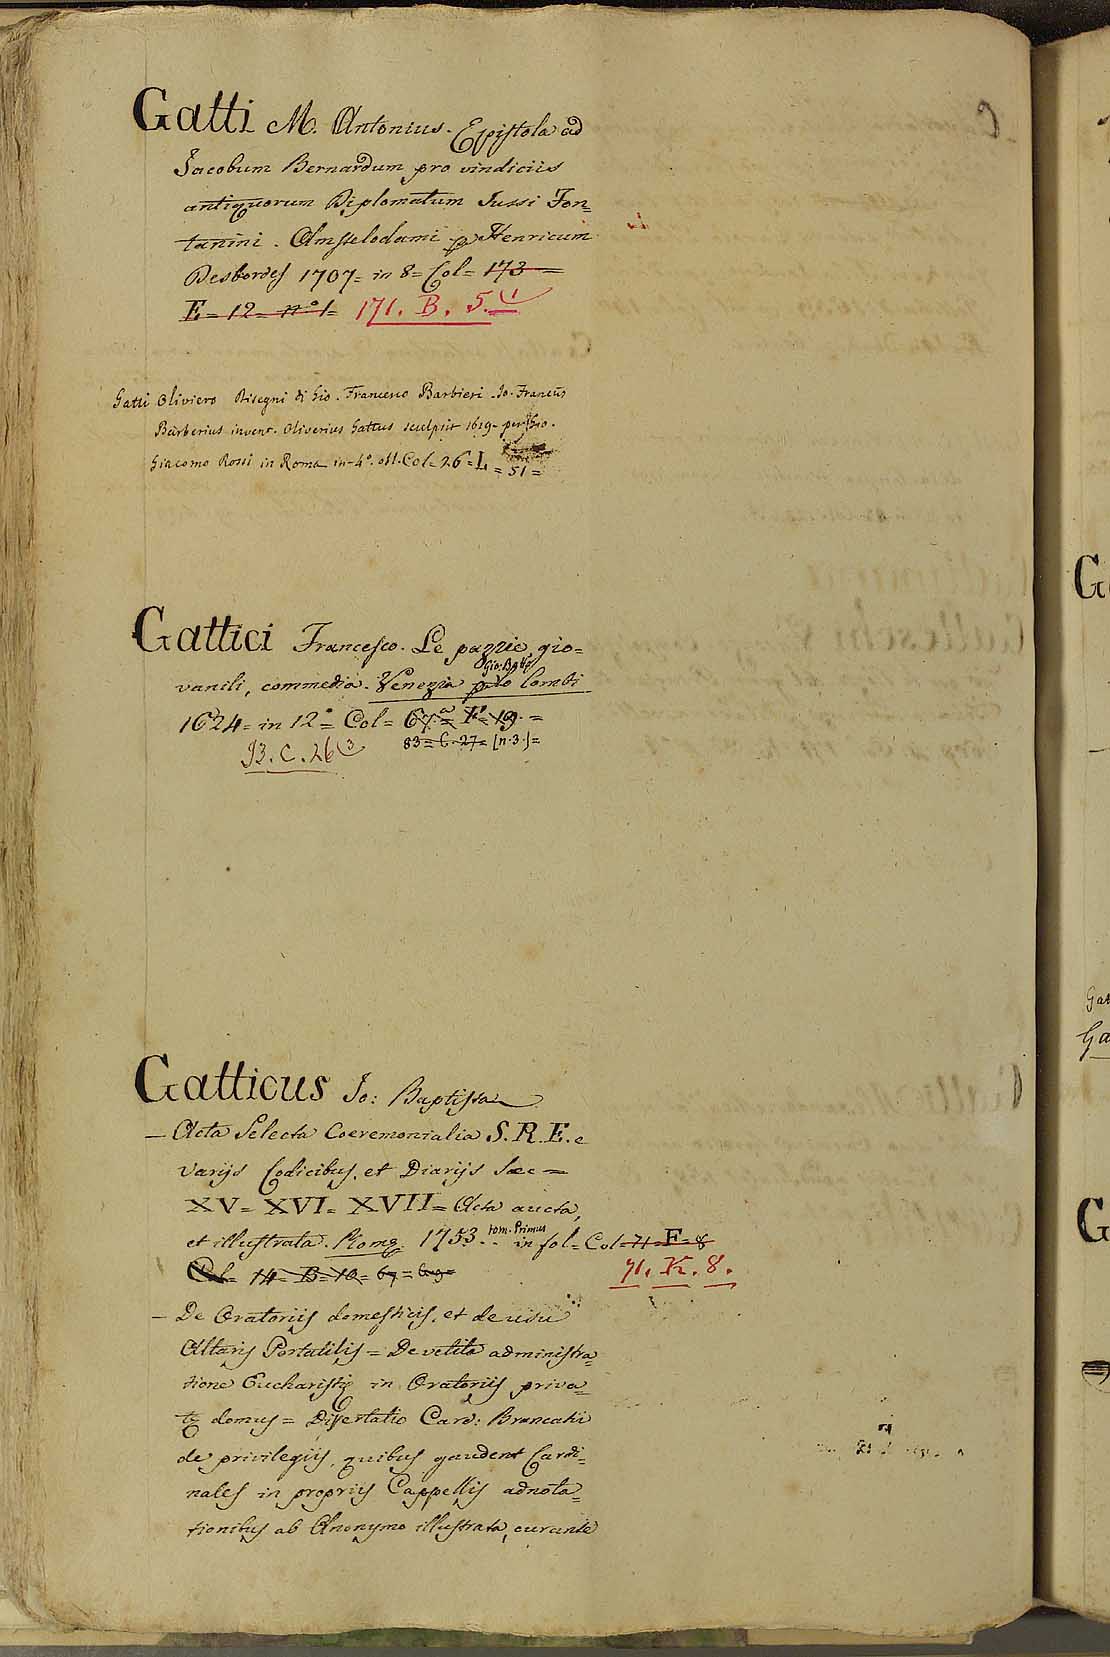 Gatti M. Antonius. Epistola ad
Jacobum Bernardum pro vindiciis
antiquorum Diplomatum Jussi Fon=
tanini. Amstelodami p Henricum
Desbordes 1707= in 8= Col= 173=
E= 12= nº 1= 171. B. 5. 1
Gatti Oliviero Disegni di Gio. Francesco Barbieri. Jo. Francus
Barberius invent. Oliverius Gattus sculpsit 1619. per Gio.
Giacomo Rossi in Roma in-4º. obl. Col= 26= L= 51=
Gattici Francesco. Le pazzie gio=
vanili, commedia. Venezia p lo Gio: Batta Combi
1624= in 12º Col= 67= F= 19=
83= C. 27= [n. 3.]=
93. C. 26 3
Gatticus Jo: Baptista
— Acta Selecta Coeremonialia S. R. E. e
varijs Codicibus, et Diarijs Sæc=
XV= XVI= XVII= Acta aucta,
et illustrata. Romę 1753. tom. Primus in fol= Col= 71= F= 8
Col= 14= B= 10= 67= 69=
71. K. 8.
— De Oratoriis domesticis, et de usu
Altaris Portatilis= De vetita administra=
tione Eucharistię in Oratoriis priva=
tę domus= Dissertatio Card: Brancatii
de privilegiis, quibus gaudent Cardi=
nales in propriis Cappellis adnota=
tionibus ab Anonymo illustrata, curante